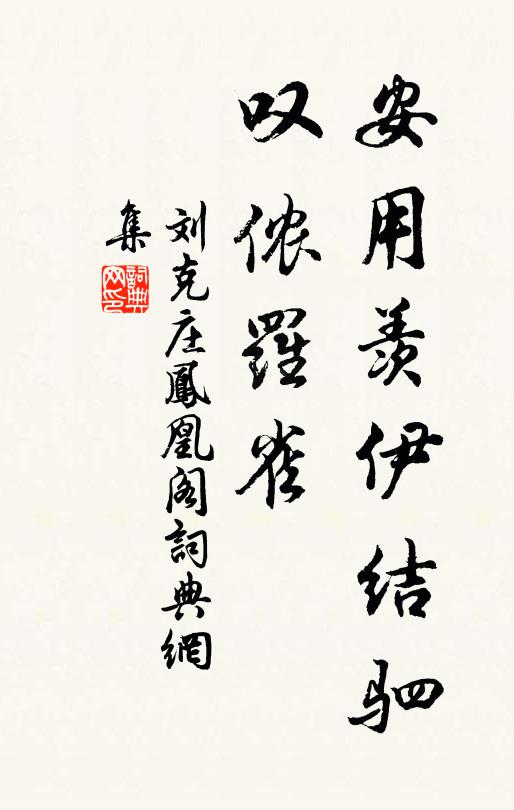 安用羨伊结驷
叹侬羅雀
刘克庄鳳凰阁詞典網
集
詞典网印